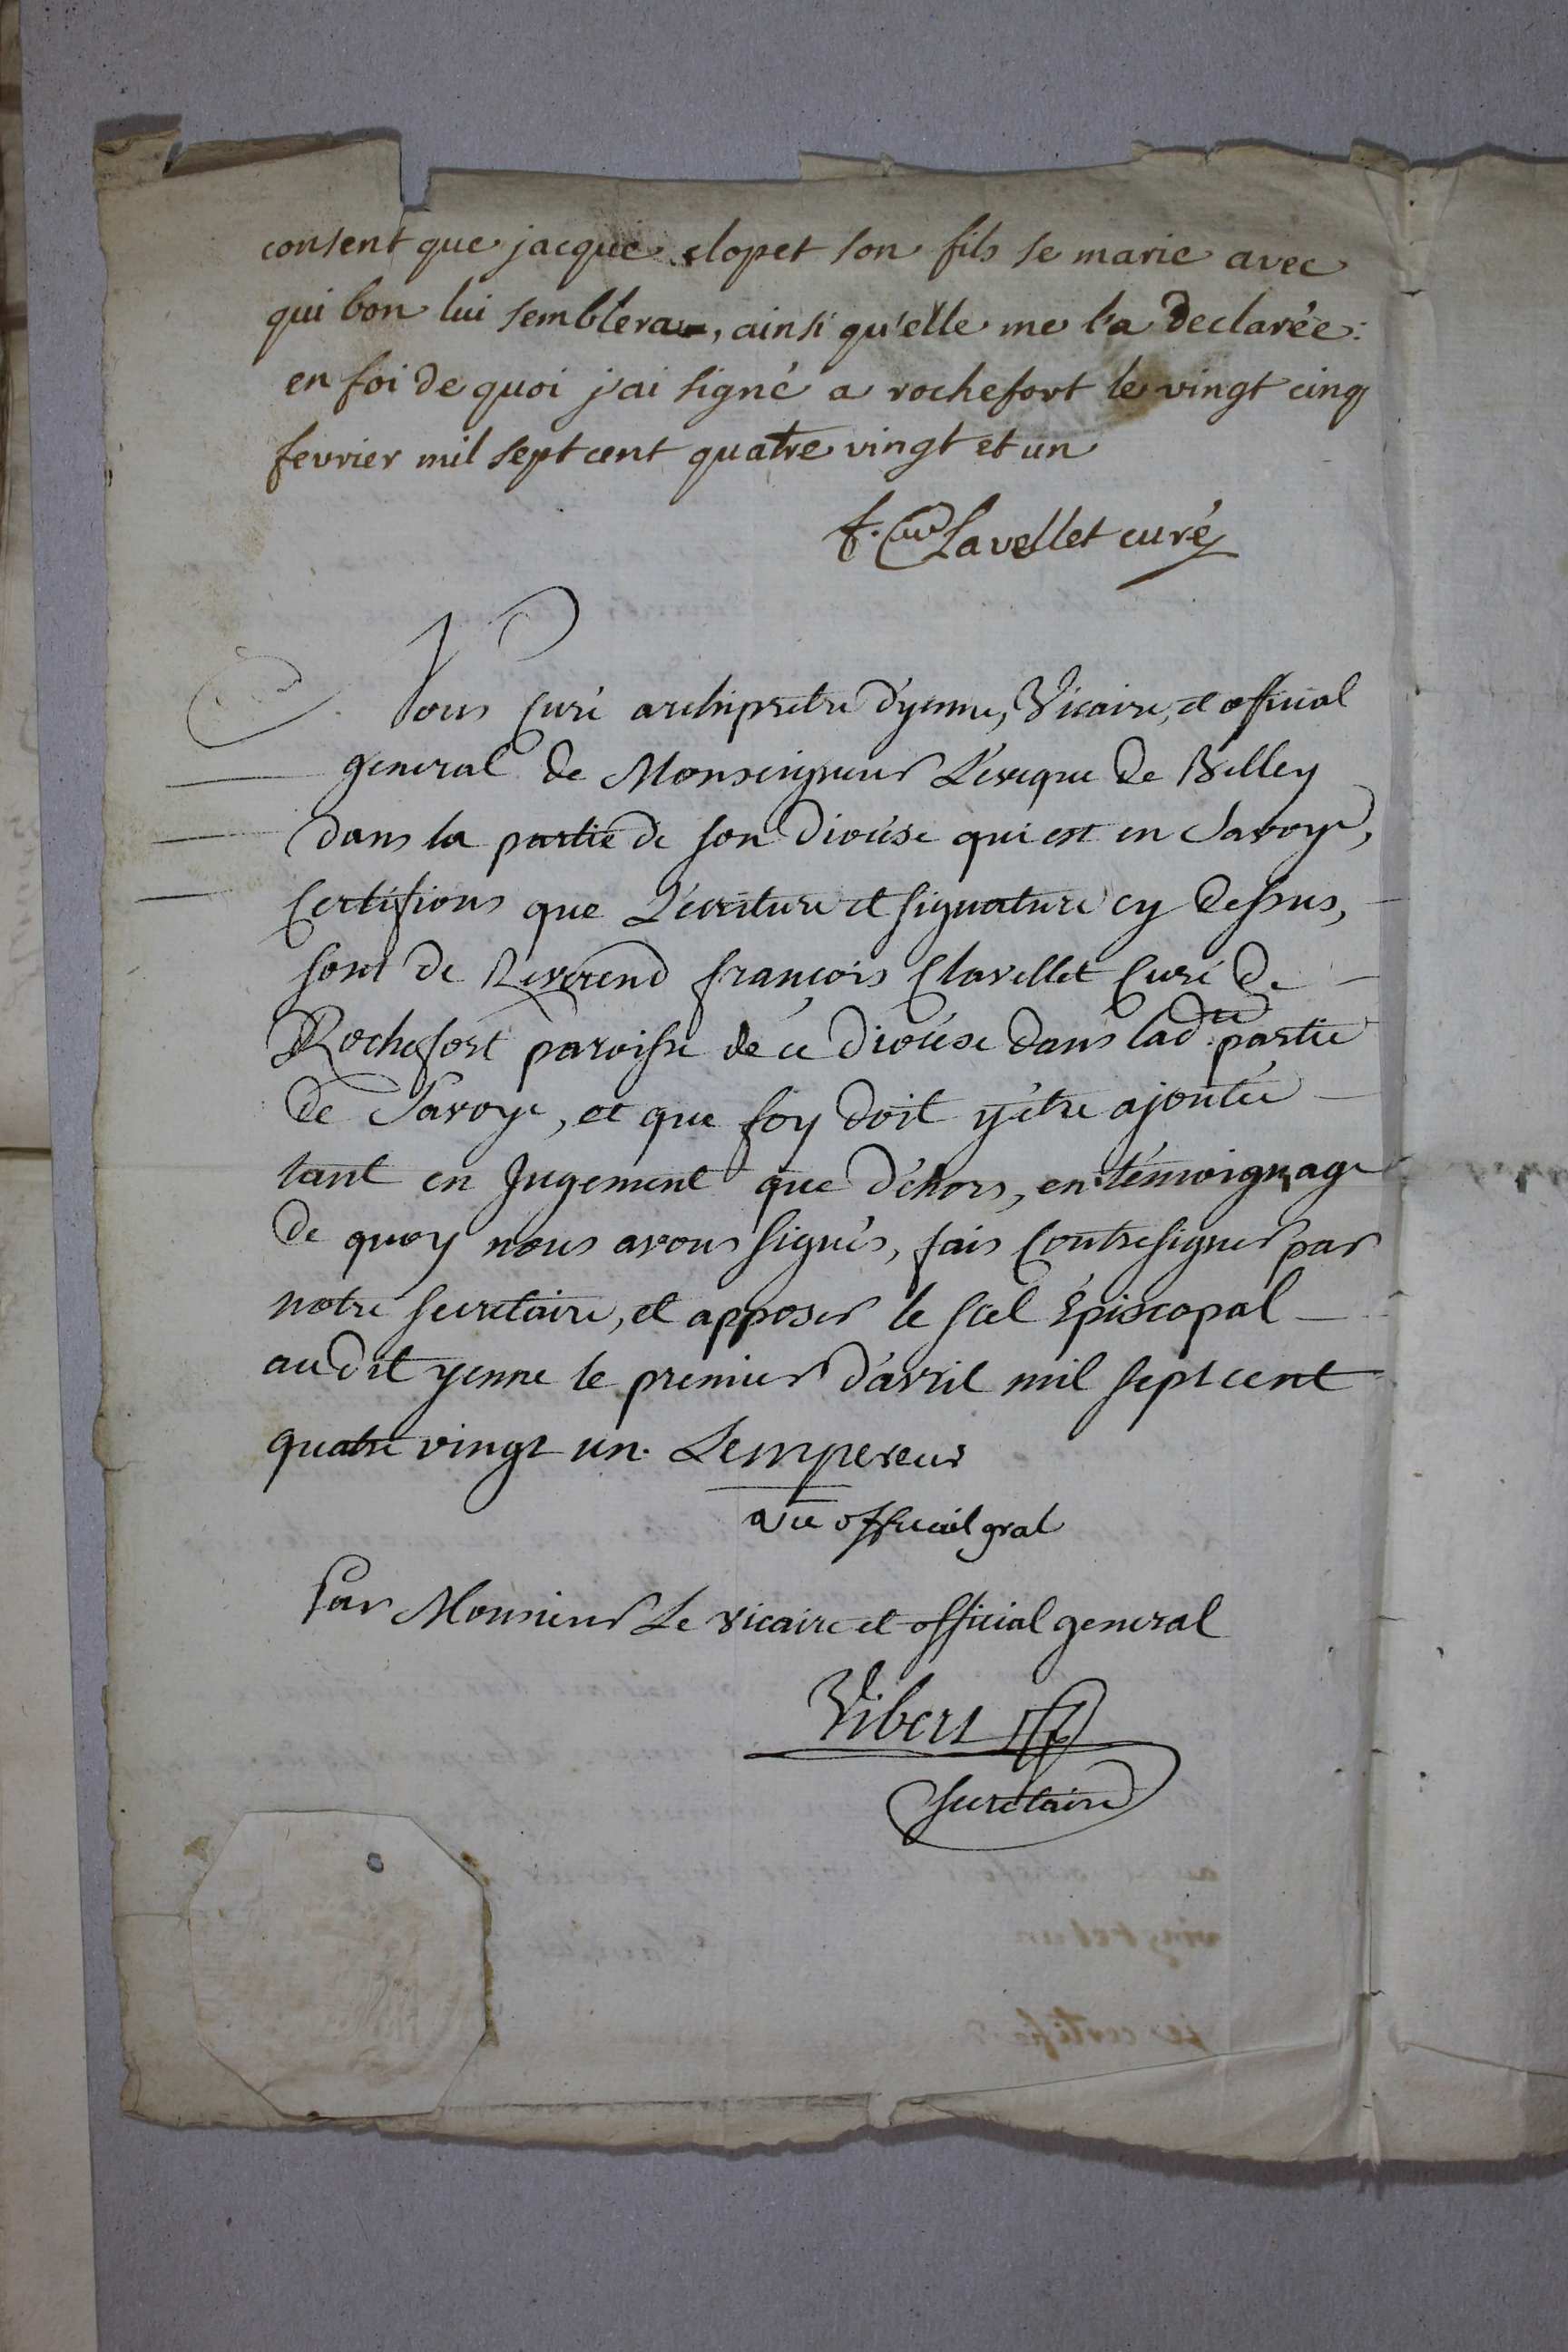 consent que jacque clopet son fils se marie avec
qui bon lui semblera, ainsi qu'elle me l'a declarée:
en foi de quoi j'ai signé a rochefort le vingt cinq
fevrier mil sept cent quatre vingt et un
f. Clavellet curé
Nous Curé archipretre d'yenne, Vicaire, et official
general de Monseigneur L'eveque de Belley
dans la partie de son diocése qui est en Savoye,
Certifions que L'ecriture et signature cy dessus,
sont de Reverend françois Clavellet Curé de
Rochefort paroisse de ce diocése dans lad.te partie
de Savoye, et que foy doit y être ajoutée
tant en Jugement que déhors, en témoignage
de quoy nous avons signés, fais Contresigner par
notre secretaire, et apposer le scel Episcopal
audit yenne le premier d'avril mil sept cent
quatre vingt un. Lempereur
vic official gral
Par Monsieur Le vicaire et official general
Vibert
secretaire
vingt et un
je certifie